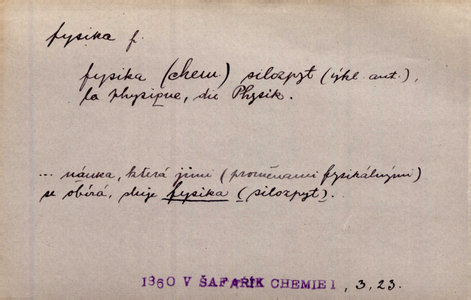 fysika f.
fysika (chem.) silozpyt (výkl. aut.),
la Physique, die Physik.
... náuka, která jimi (proměnami fysikálnými)
se obírá, sluje fysika (silozpyt).
1860 V ŠAFAŘÍK CHEMIE I, 3, 23.